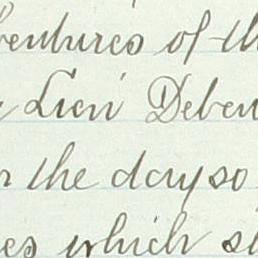 bentures of th
Lien Deben
the day so
es which s